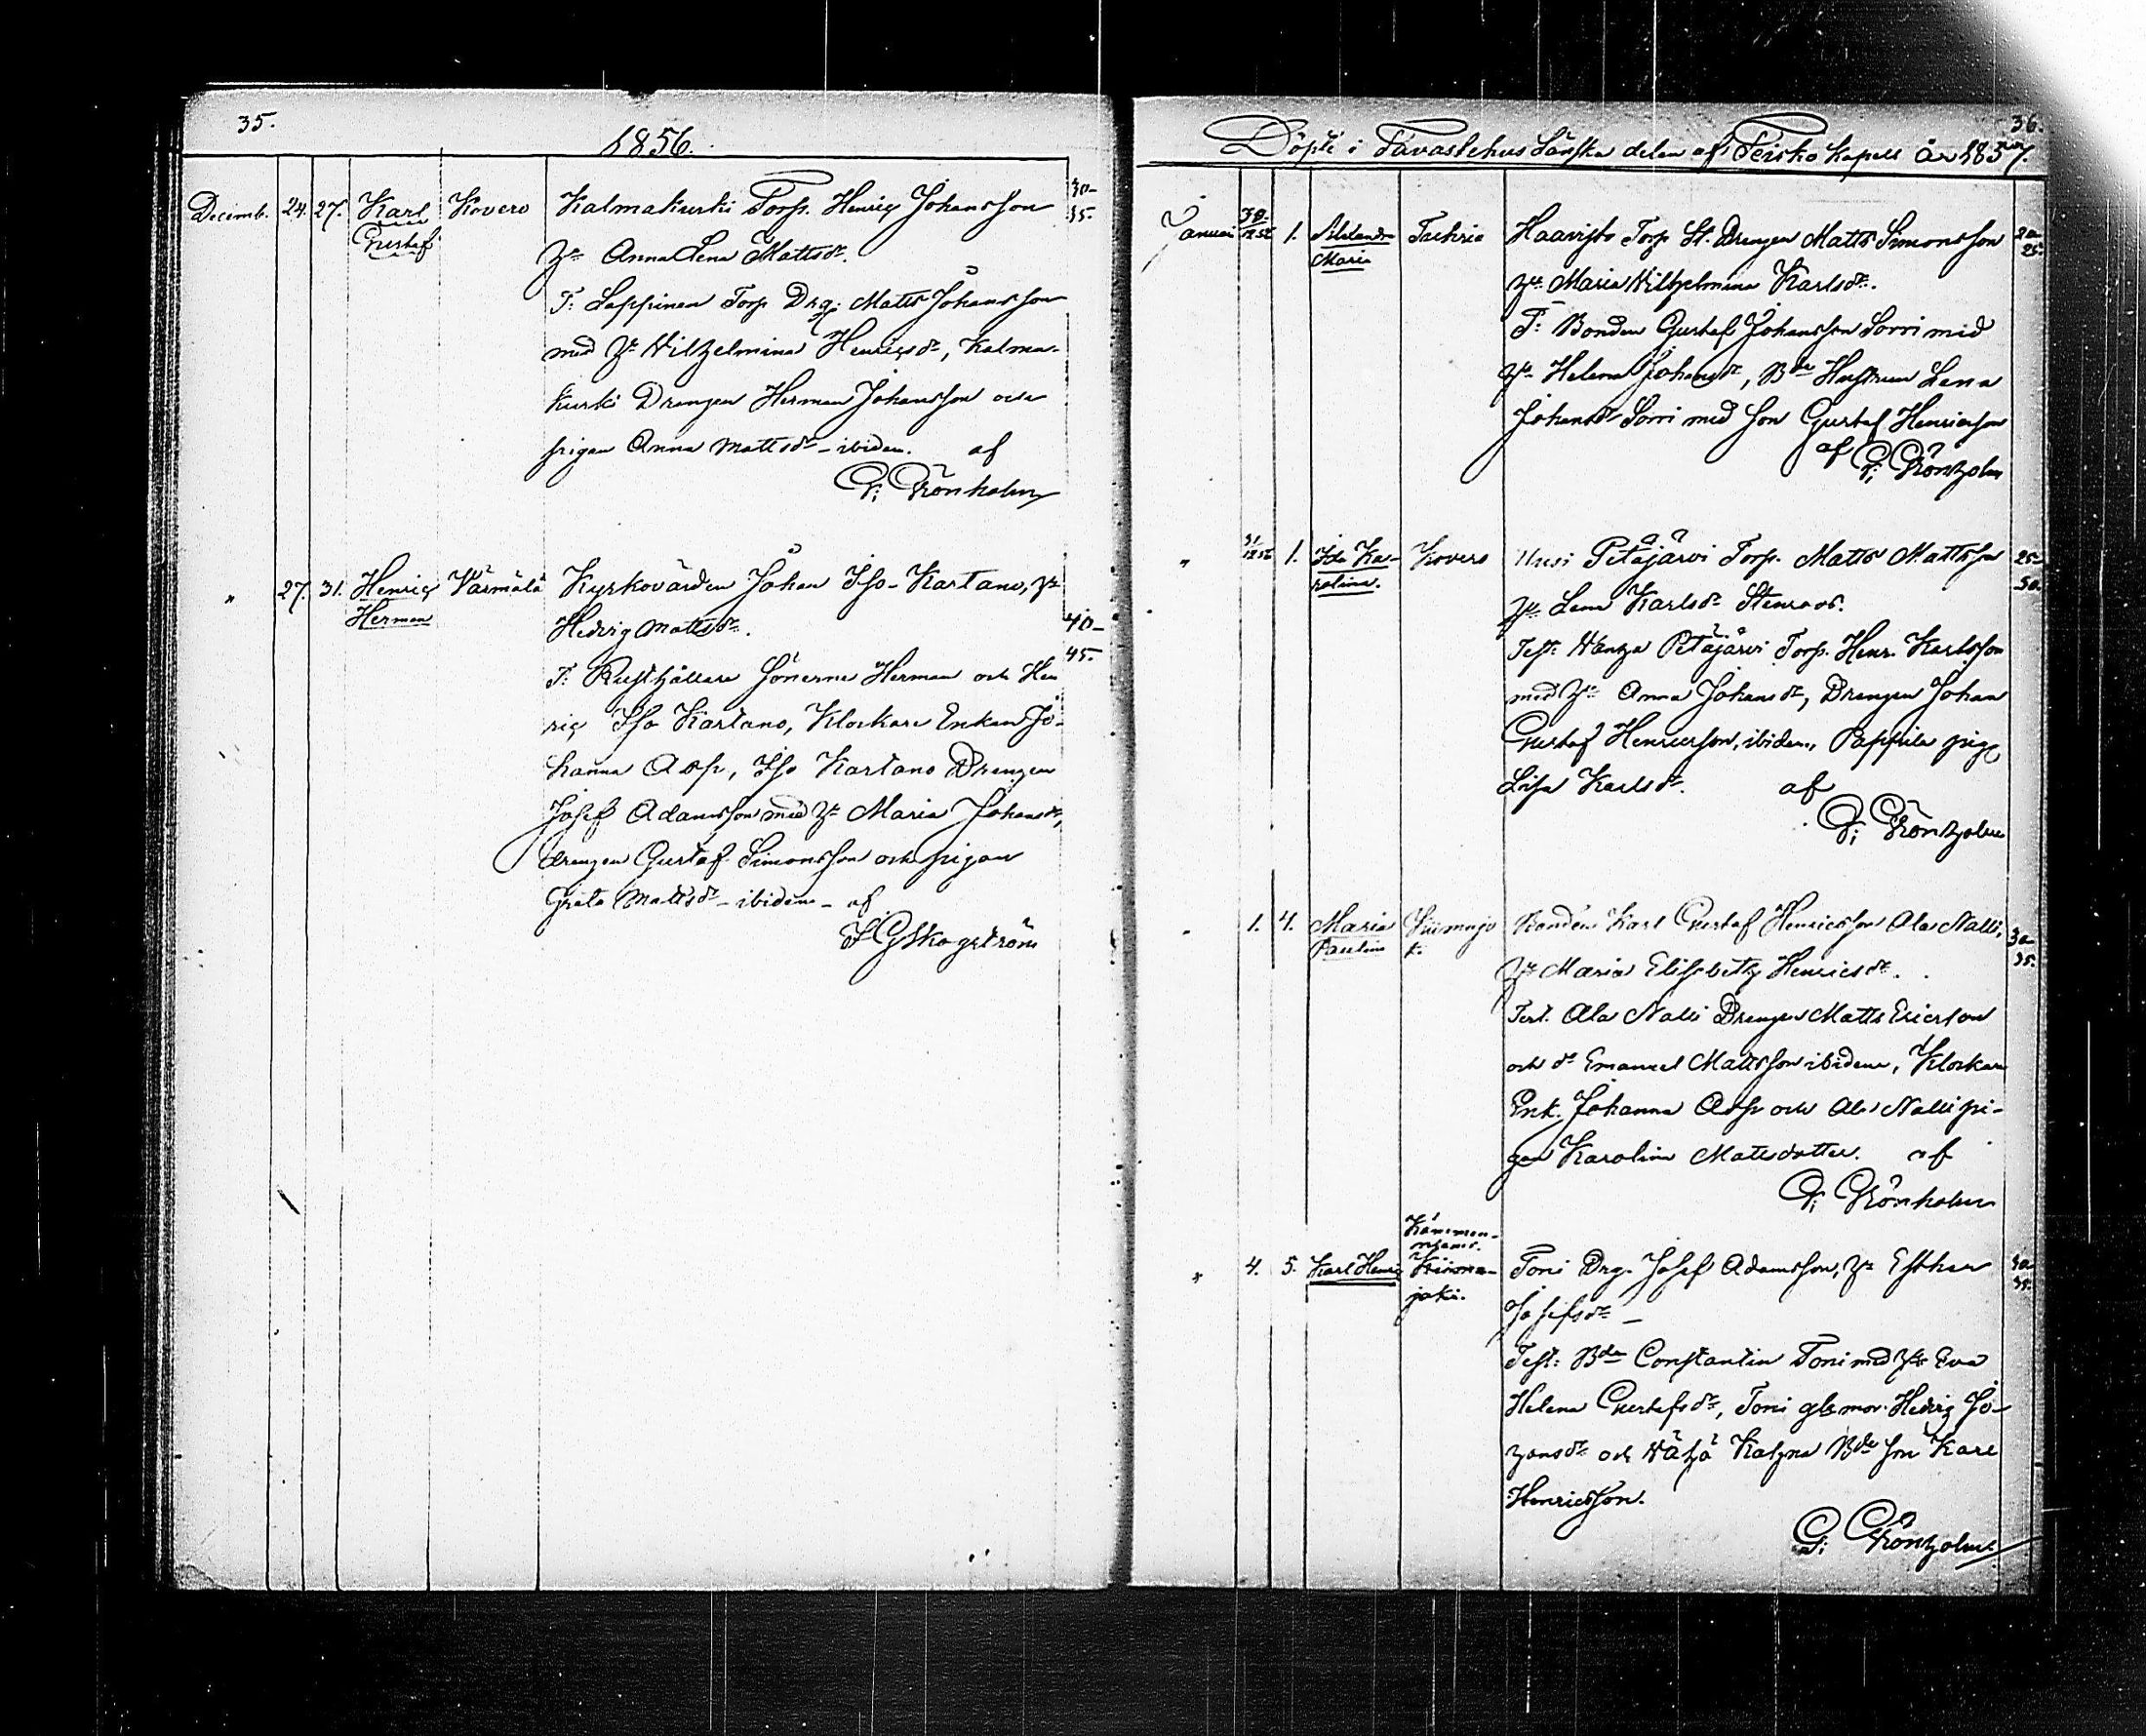 35.
1856.
Decemb. 24. 27. Karl Gustaf Kovero Kalmakurki Torp. Henric Johansson 30-35.
Hu Anna Lena Mattsdr.
T: Lappinen Torp Drg. Matts Johansson
med Hu Wilhelmina Henricsdr, Kalma-
kurki Drengen Herman Johansson och
pigan Anna Mattsdr - ibidem. af
G: Grönholm
" 27. 31. Henric Herman Värmälä Kyrkovärden Johan Iso-Kartano, Hu
Hedvig Mattsdr. 40-45.
T: Rusthållare Sönerne Herman och Hen
ric Iso Kartano, Klockare Enkan Jo-
hanna Asp, Iso Kartano Drengen
Josef Adamsson med Hu Maria Johansdr,
drengen Gustaf Simonsson och pigan
Greta Mattsdr - ibidem - af
Skogström
36.
Döpte i Tavastehus Länska delen af Teisko Kapell År 1857.
Januari 30/12 56 1. Maria Haavisto Torp St. Drengen Matts Simonsson 20-25.
Hu Maria Wilhelmina Karlsdr.
T: Bonden Gustaf Johansson Sorri med
Hu Helena Johansdr, Bde Hustrun Lena
Johansdr Sorri med Son Gustaf Henricsson
af G: Grönholm
" 31/12 56 1. Ida Ka-
rolina. Kovero Uusi Petäjärvi Torp. Matts Mattsson 25-30.
Hu Lena Karlsdr Stenroos.
Test: Wanha Petäjärvi Torp. Henr. Karlsson
med Hu Anna Johansdr, Drengen Johan
Gustaf Henricsson, ibidem, Pappila piga
Lisa Karlsdr. af
G: Grönholm
" 1. 4. Maria Paulina Bonden Karl Gustaf Henricsson Ala Nalli, 30-35.
Hu Maria Elisabeth Henricsdr.
Test. Ala Nalli Drengen Matts Ericsson
och dr Emanuel Mattsson ibidem, Klockare
Enk. Johanna Asp och Ala Nalli pi-
gan Karolina Mattsdotter. af
G: Grönholm
" 4. 5. Karl Henric Kämmen-
niemi.
Kiima-
joki. Toni Drg. Josef Adamsson, Hu Esther
Josefsdr -
Test: Bde Constantin Toni med Hu Eva
Helena Gustafsdr, Toni gl. mor. Hedvig Jo-
hansdr och Wähä Bde Son Karl
Henricsson.
G: Grönholm